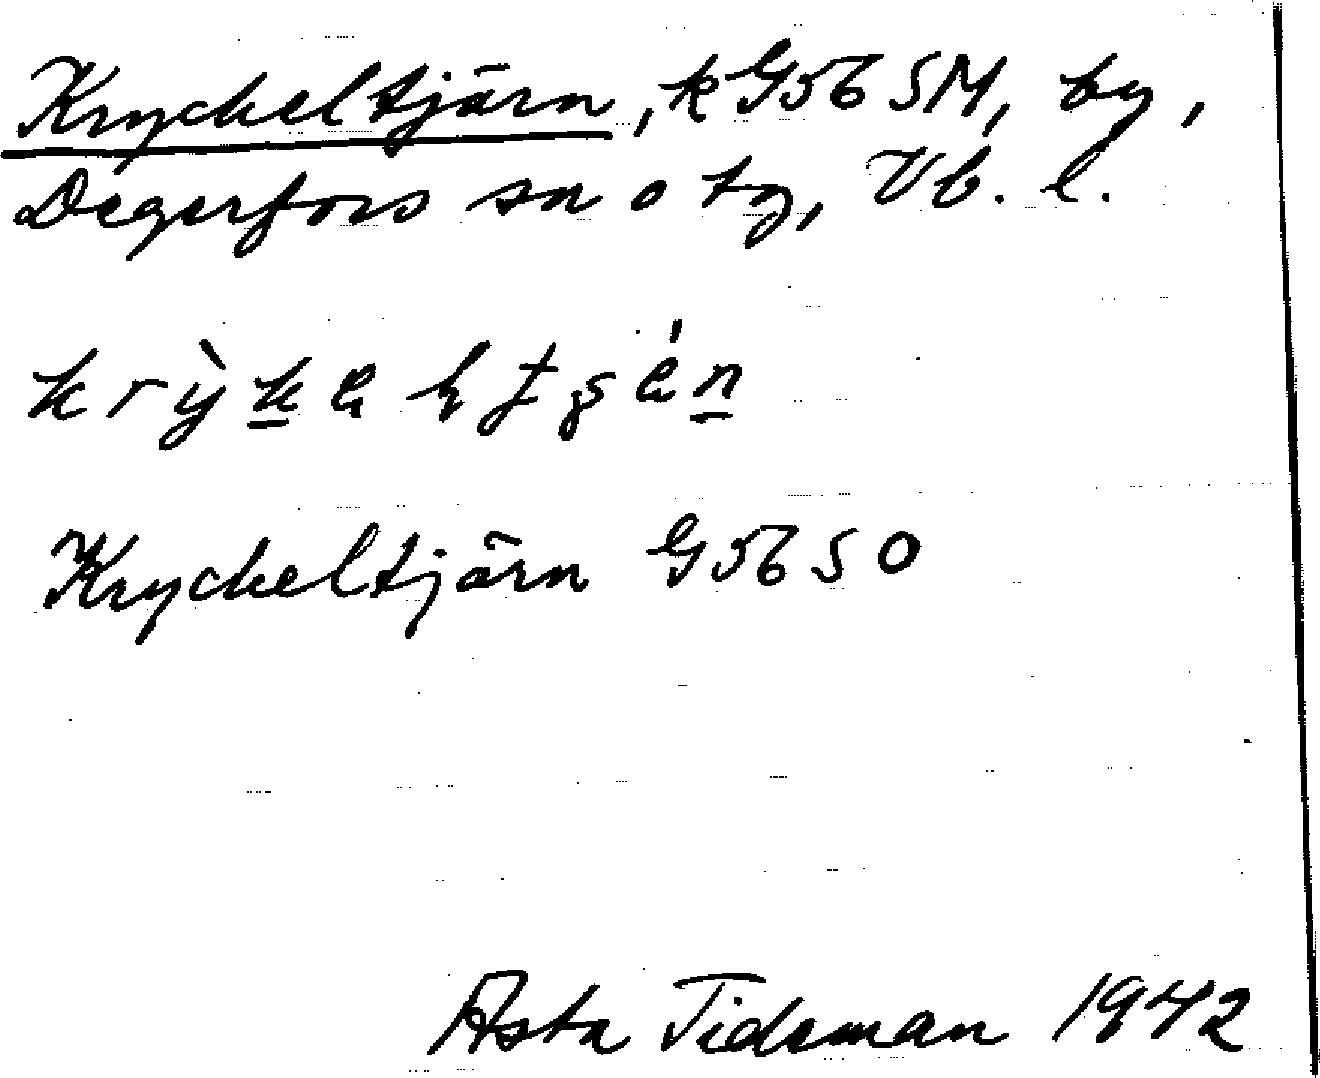 Kryckeltjärn, k G56 SM, by,
Degerfors sn o tg, Vb. l.
Kryckeltjärn G56 SO
Asta Tideman 1942